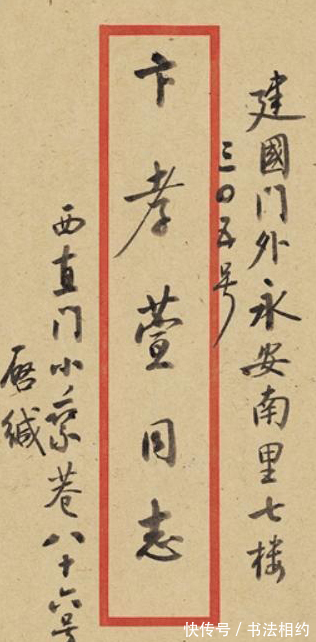 建國门外永安南里七楼
三〇五号
卞孝萱同志
西直门小乘巷八十六号
启缄
快传号/书法相约